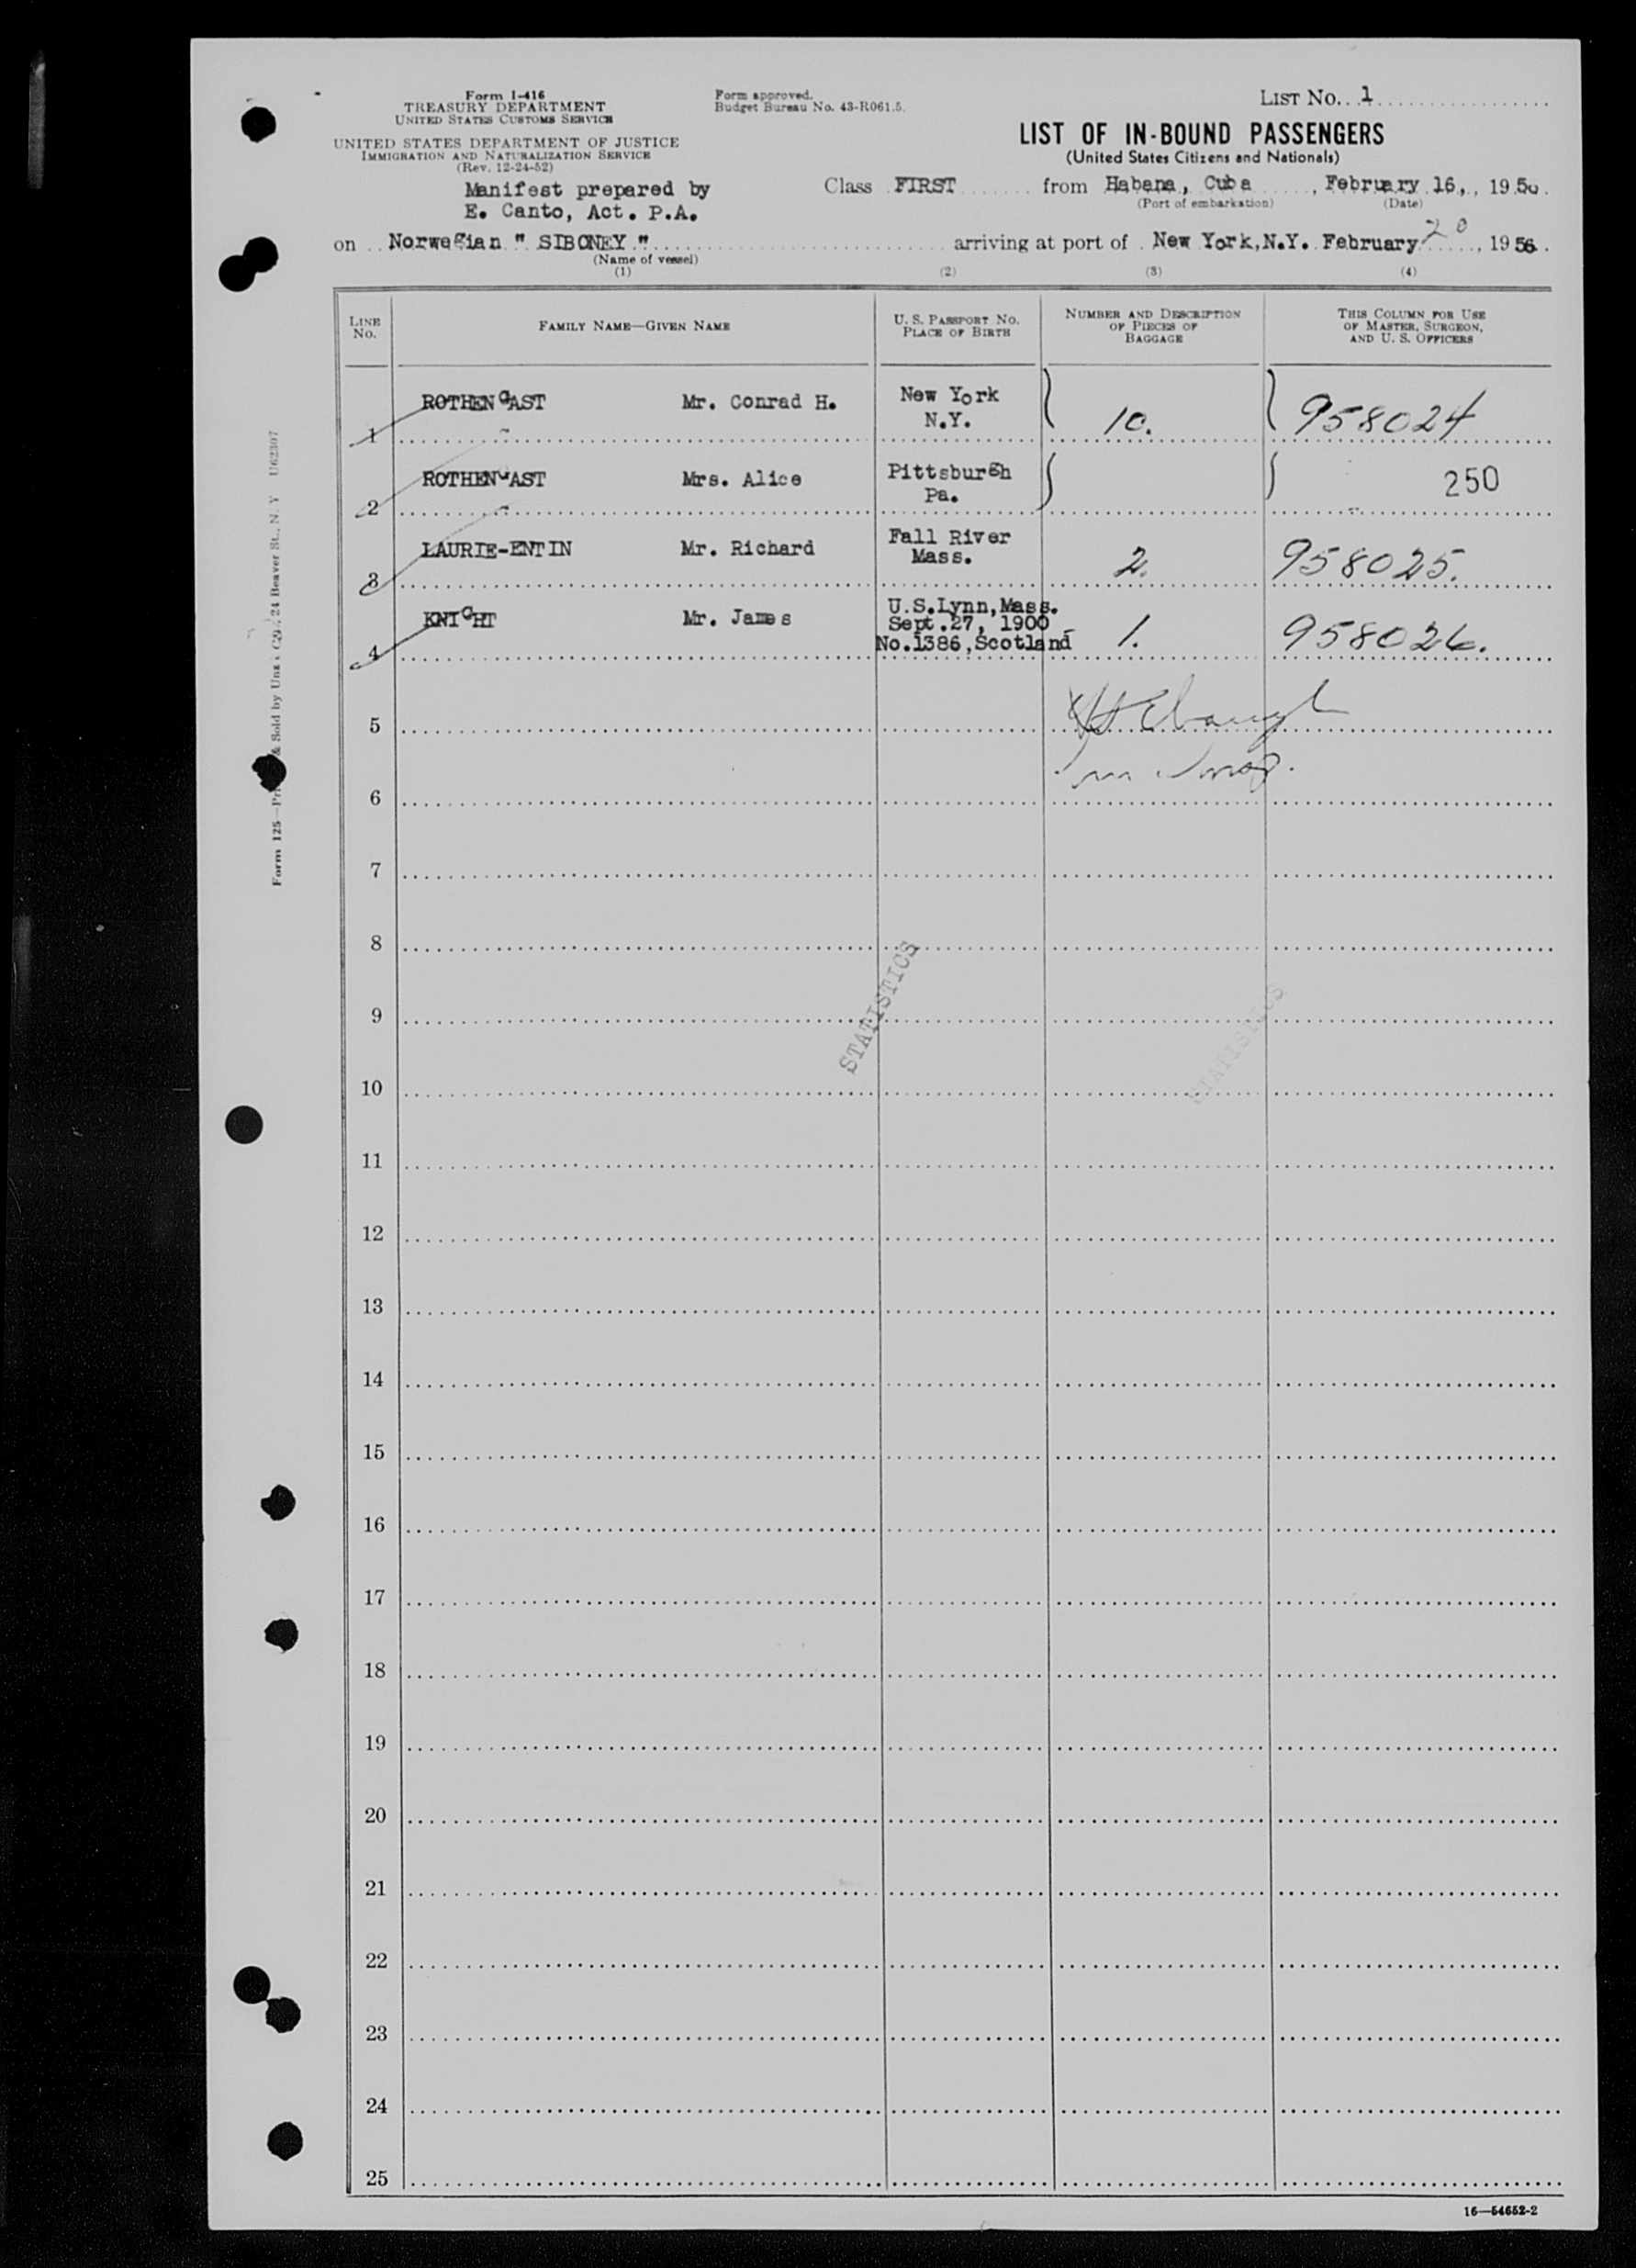 Form I-416
TREASURY DEPARTMENT
UNITED STATES CUSTOMS SERVICE
UNITED STATES DEPARTMENT OF JUSTICE
IMMIGRATION AND NATURALIZATION SERVICE
(Rev. 12-24-52)
Form approved.
Budget Bureau No. 43-R061.5.
LIST NO. 1
LIST OF IN-BOUND PASSENGERS
(United States Citizens and Nationals)
Manifest prepared by
E. Canto, Act. P.A.
Class FIRST from Habana, Cuba, February 16, 1956.
(Port of embarkation) (Date)
on Norwegian " SIBONEY " arriving at port of New York, N.Y. February 20, 1956.
(Name of vessel)
(1) (2) (3) (4)
LINE NO.
FAMILY NAME—GIVEN NAME
U. S. PASSPORT NO.
PLACE OF BIRTH
NUMBER AND DESCRIPTION
OF PIECES OF
BAGGAGE
THIS COLUMN FOR USE
OF MASTER, SURGEON,
AND U. S. OFFICERS
1 ROTHENGAST Mr. Conrad H. New York N.Y. 10. 958024
2 ROTHENGAST Mrs. Alice Pittsburgh Pa. 250
3 LAURIE-ENTIN Mr. Richard Fall River Mass. 2. 958025.
4 KNIGHT Mr. James U.S.Lynn, Mass. Sept.27, 1900 No.1386, Scotland 1. 958026.
5
6
7
8
9
10
11
12
13
14
15
16
17
18
19
20
21
22
23
24
25
STATISTICS
STATISTICS
Form 125—& Sold by 24 Beaver St., N. Y U62307
16—54652-2